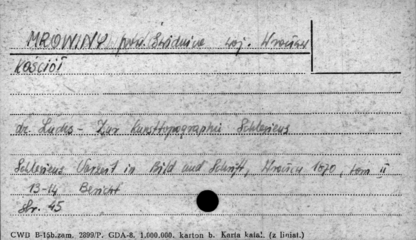 MROWINY pow. Świdnica woj. Wrocław
Kościół
dr. Luchs - Zur Kunsttopographie Schlesiens
Schlesiens Vorzeit in Bild und Schrift, Wrocław 1870, tom II
13-14 Bericht
Str. 45
CWD B-15b. zam. 2899/P. GDA-8. 1.000.000. karton b. Karta katal. (z liniat.)